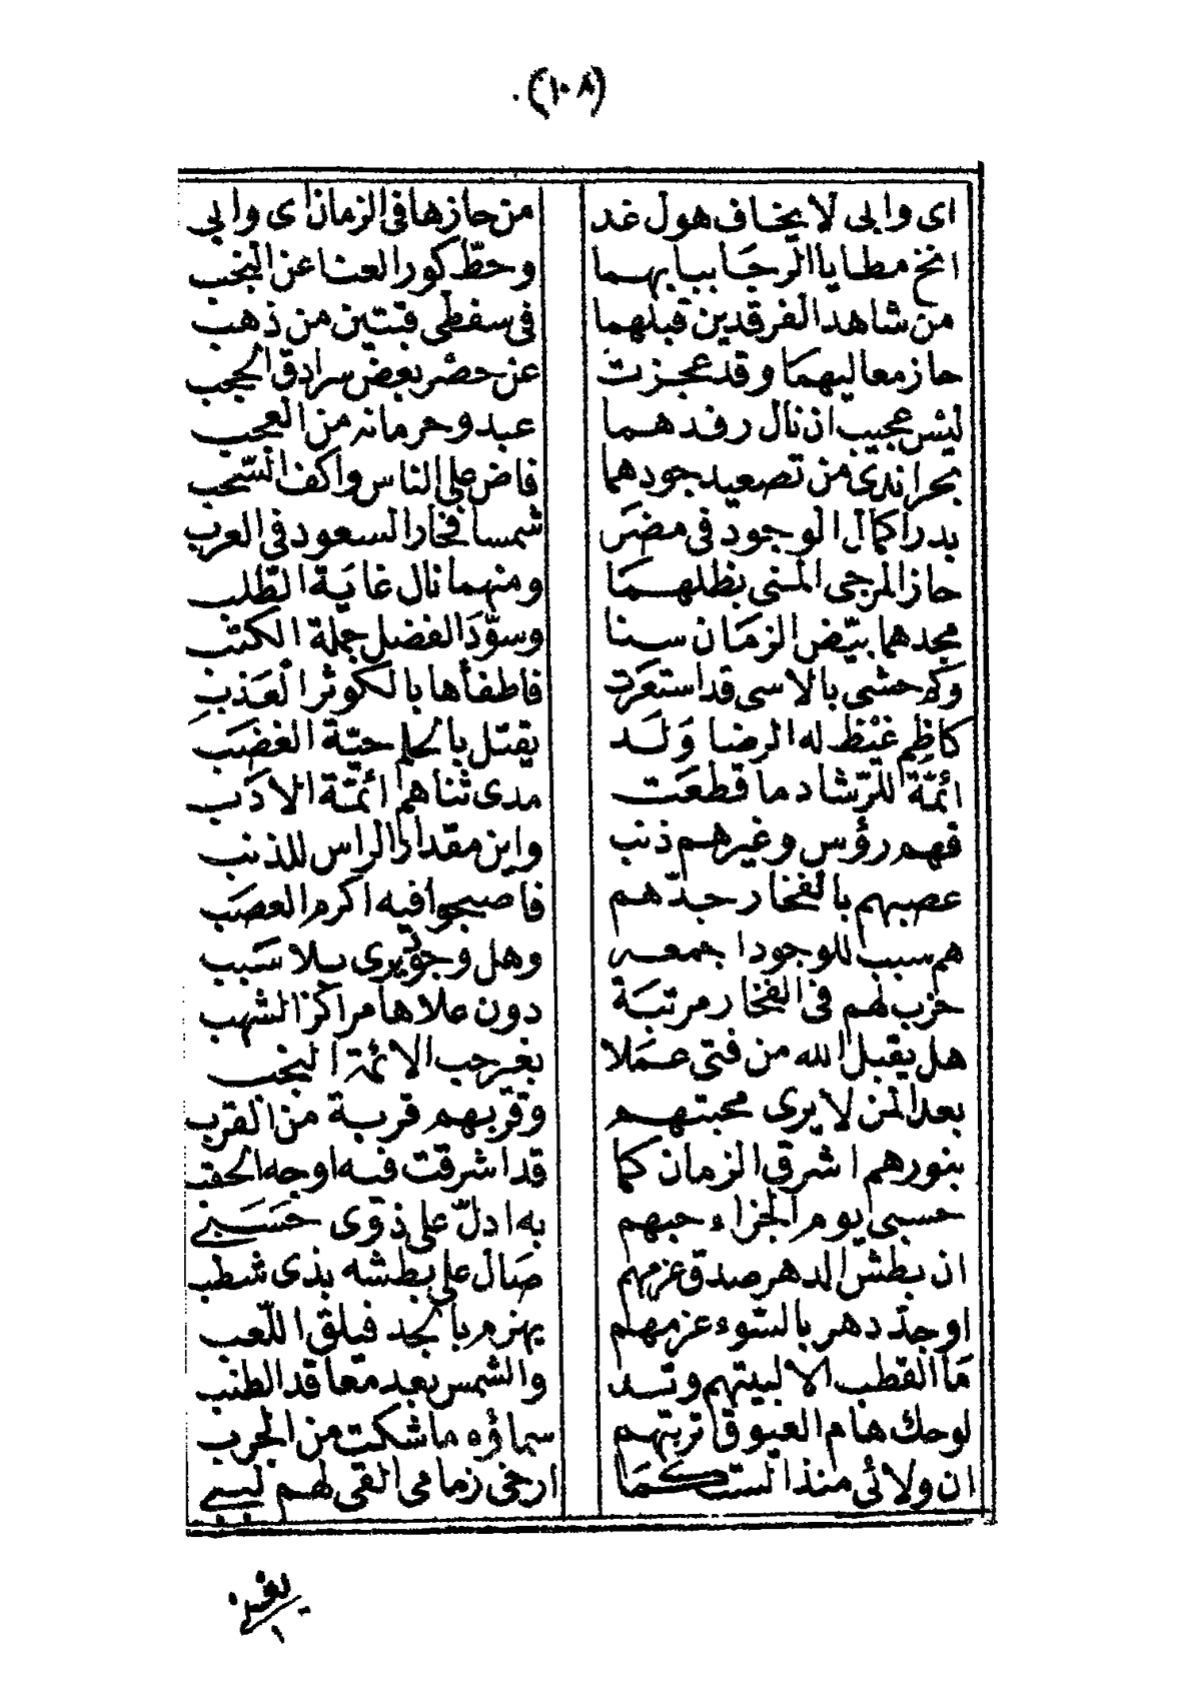 (١٠٨)
اى وابى لا يخاف هول غد من حازها فى الزمان اى وابى
انخ مطايا الرجا ببابهما وحطّ كور العنا عن النجب
من شاهد الفرقدين قبلهما فى سفطى قبتين من ذهب
حاز معاليهما وقد عجزت عن حصر بعض سرادق الحجب
ليس عجيب ان نال رفدهما عبد وحرمانه من العجب
بحرا ندى من تصعيد جودهما فاض على الناس واكف السّحب
بدرا كمال الوجود فى مضر شمسا فخار السعود فى العرب
حاز المرجى المنى بظلهما ومنهما نال غاية الطّلب
مجدهما بيّض الزمان سنا وسوّد الفضل جملة الكتب
وكم حشى بالاسى قد استعرت فاطفأها بالكوثر العذب
كاظم غيظ له الرضا ولد يقتل بالحلم حيّة الغضب
ائمّة للرّشاد ما قطعت مدى ثناهم ائمّة الادب
فهم رؤس وغيرهم ذنب واين مقدار الراس للذنب
عصبهم بالفخار جدّهم فاصبحوا فيه اكرم العصب
هم سبب للوجود اجمعه وهل وجود يرى بلا سبب
حزب لهم فى الفخار مرتبة دون علاها مراكز الشهب
هل يقبل الله من فتى عملا بغير حب الائمة النجب
بعدا لمن لا يرى محبتهم وقربهم قربة من القرب
بنورهم اشرق الزمان كما قد اشرقت فيه اوجه الحقب
حسبى يوم الجزاء حبهم به ادلّ على ذوى حسبى
ان بطش الدهر صدق عزمهم صال على بطشه بذى شطب
او جدّ دهر بالسّوء عزمهم يهزم بالجد فيلق اللّعب
ما القطب الا لبيتهم وتد والشمس بعد معاقد الطنب
لو حك هام العيوق تربتهم سماؤه ما شكت من الجرب
ان ولائى منذ الست كما ارخى زمامى القى لهم لببى